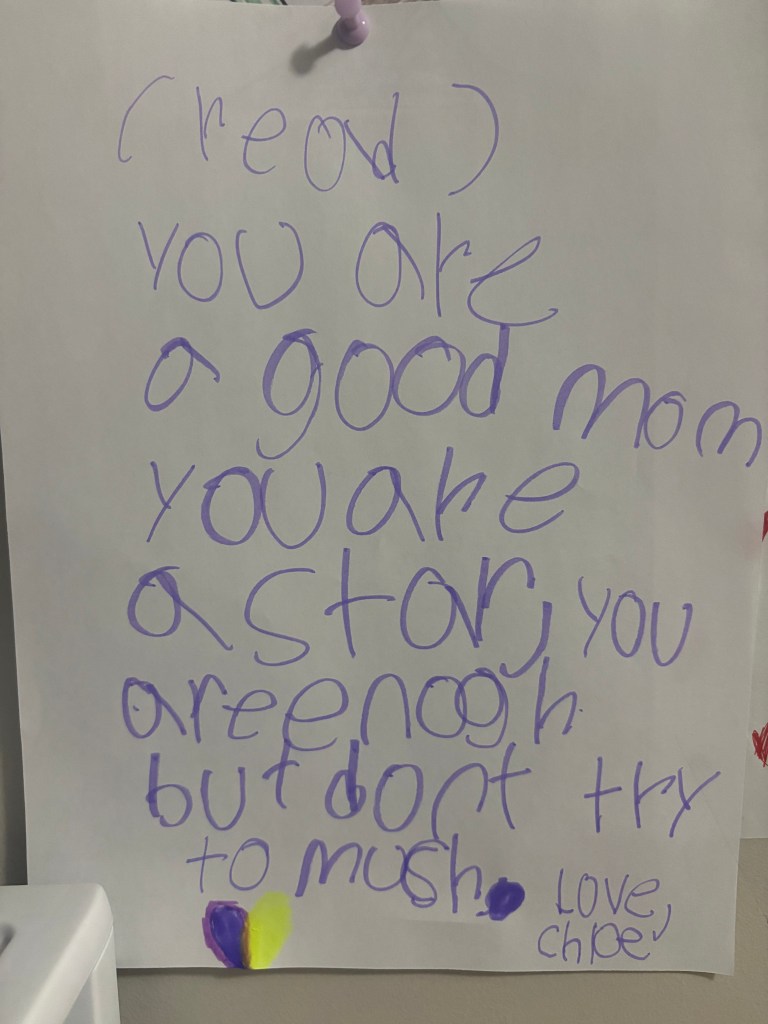 (read)
you are
a good mom
you are
a star, you
are enogh
but dont try
to mush.
Love,
Chloe